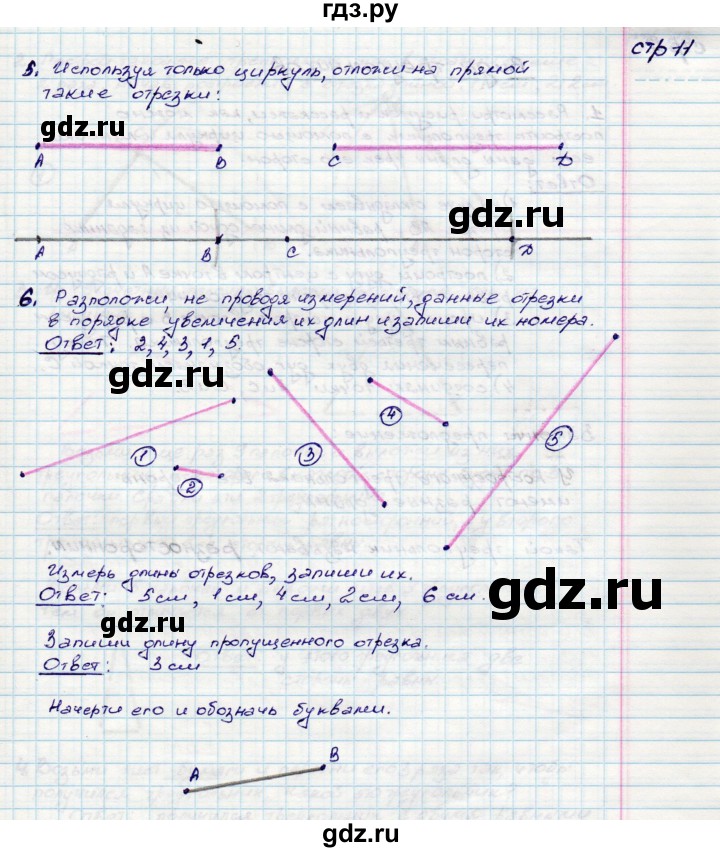 гдз.ру
стр 11
5. Используя только циркуль, отложи на прямой
такие отрезки:
gdz.ru
A B C D
gdz.ru
A B C D
6. Разположи, не проводя измерений, данные отрезки
в порядке увеличения их длин и запиши их номера.
Ответ: 2, 4, 3, 1, 5.
gdz.ru
1 2 3 4 5
Измерь длины отрезков, запиши их.
Ответ: 5 см, 1 см, 4 см, 2 см, 6 см.
gdz.ru
gdz.ru
Запиши длину пропущенного отрезка.
Ответ: 3 см
Начерти его и обозначь буквами.
A B
gdz.ru